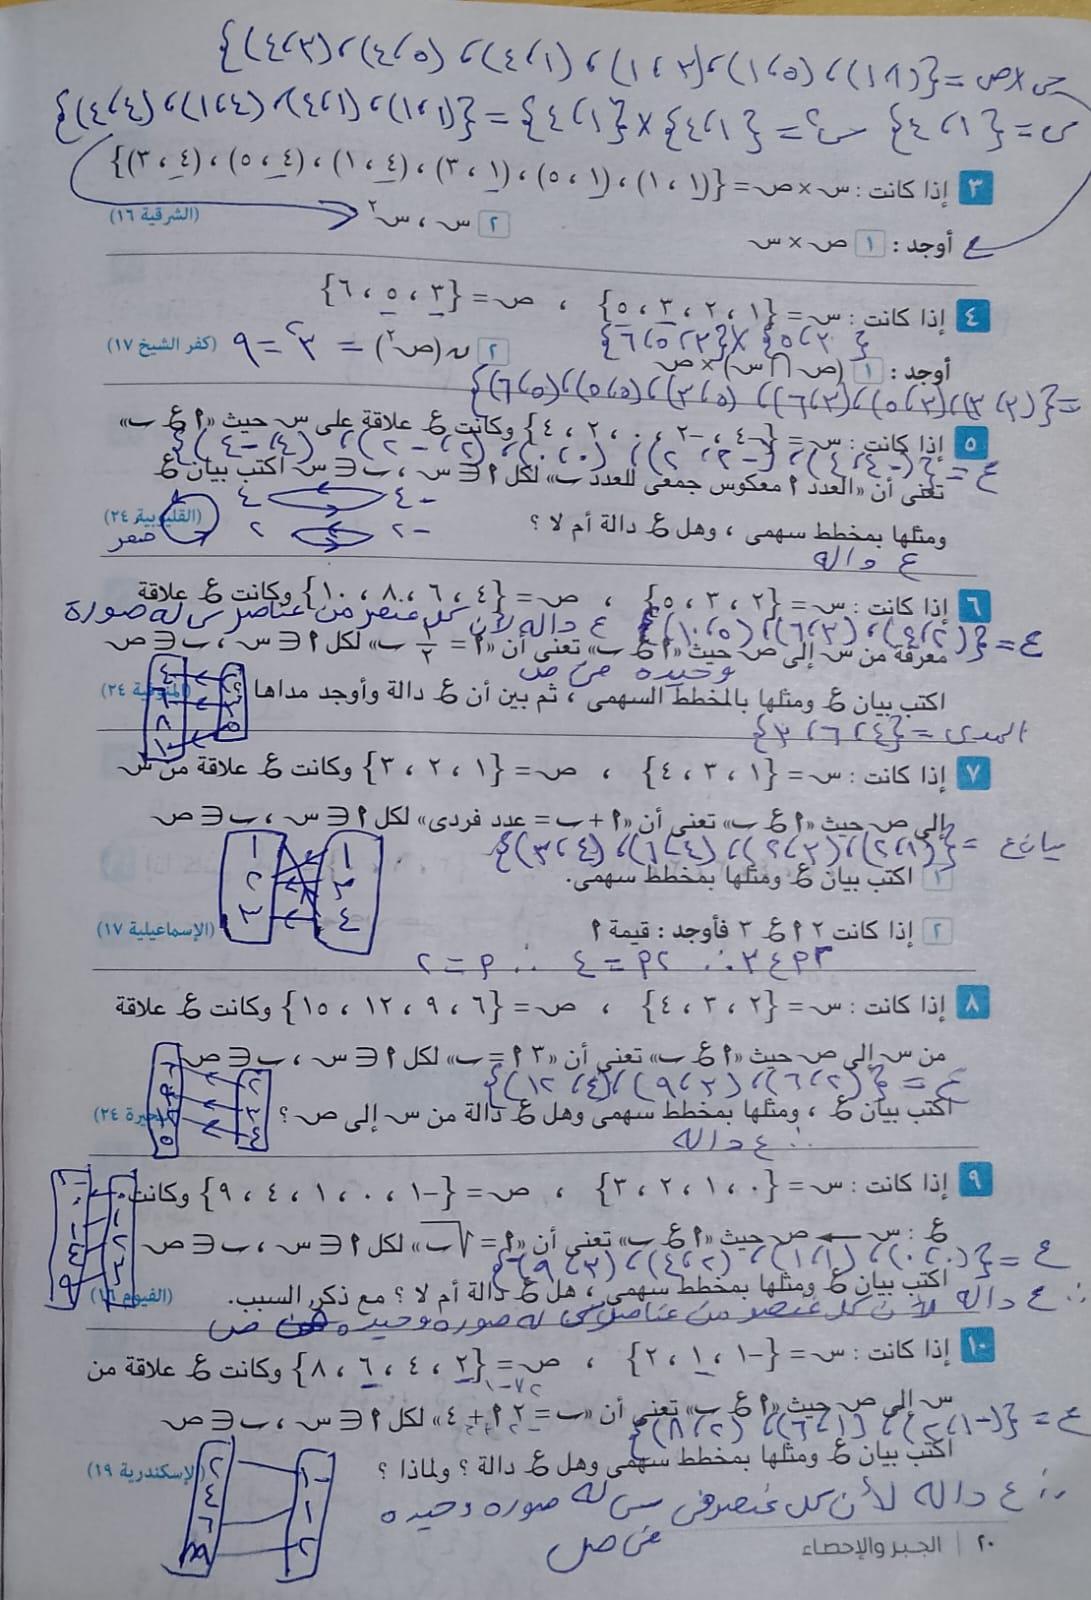 س × ص = {(١،١)، (١،٥)، (١،٣)، (٤،١)، (٤،٥)، (٤،٣)}
س = {١،٤} س٢ = {١،٤} × {١،٤} = {(١،١)، (١،٤)، (٤،١)، (٤،٤)}
٣ إذا كانت : س × ص = {(١ ، ١) ، (١ ، ٥) ، (١ ، ٣) ، (٤ ، ١) ، (٤ ، ٥) ، (٤ ، ٣)}
أوجد : ١ ص × س ٢ س ، س٢ (الشرقية ١٦)
٤ إذا كانت : س = {١ ، ٢ ، ٣ ، ٥} ، ص = {٣ ، ٥ ، ٦}
{٣،٥} × {٣،٥،٦}
أوجد : ١ (ص ∩ س) × ص ٢ ن (ص٢) = ٣٢ = ٩ (كفر الشيخ ١٧)
= {(٣،٣)، (٣،٥)، (٣،٦)، (٥،٣)، (٥،٥)، (٥،٦)}
٥ إذا كانت : س = {-٤ ، -٢ ، ٠ ، ٢ ، ٤} وكانت ع علاقة على س حيث «أ ع ب»
ع = {(-٤،٤)، (-٢،٢)، (٠،٠)، (٢،-٢)، (٤،-٤)}
تعنى أن «العدد أ معكوس جمعى للعدد ب» لكل أ ∈ س ، ب ∈ س اكتب بيان ع
-٤ ٤
ومثلها بمخطط سهمى ، وهل ع دالة أم لا ؟ (القليوبية ٢٤)
-٢ ٢ صفر
ع داله
٦ إذا كانت : س = {٢ ، ٣ ، ٥} ، ص = {٤ ، ٦ ، ٨ ، ١٠} وكانت ع علاقة
ع = {(٢،٤)، (٣،٦)، (٥،١٠)} ع داله لأن كل عنصر من عناصر س له صورة
معرفة من س إلى ص حيث «أ ع ب» تعنى أن «أ = ١/٢ ب» لكل أ ∈ س ، ب ∈ ص
وحيده فى ص
اكتب بيان ع ومثلها بالمخطط السهمى ، ثم بين أن ع دالة وأوجد مداها ؟ (المنوفية ٢٤)
٢ ٣ ٥ ٤ ٦ ٨ ١٠
المدى = {٤،٦،٣}
٧ إذا كانت : س = {١ ، ٣ ، ٤} ، ص = {١ ، ٢ ، ٣} وكانت ع علاقة من س
إلى ص حيث «أ ع ب» تعنى أن «أ + ب = عدد فردى» لكل أ ∈ س ، ب ∈ ص
بيان ع = {(١،٢)، (٣،٢)، (٤،١)، (٤،٣)}
١ اكتب بيان ع ومثلها بمخطط سهمى.
١ ٣ ٤ ١ ٢ ٣
٢ إذا كانت ٢ أ ع ٣ فأوجد : قيمة أ (الإسماعيلية ١٧)
∴ ٢أ = ٤ ∴ أ = ٢
٨ إذا كانت : س = {٢ ، ٣ ، ٤} ، ص = {٦ ، ٩ ، ١٢ ، ١٥} وكانت ع علاقة
من س إلى ص حيث «أ ع ب» تعنى أن «٣ أ = ب» لكل أ ∈ س ، ب ∈ ص
ع = {(٢،٦)، (٣،٩)، (٤،١٢)}
اكتب بيان ع ، ومثلها بمخطط سهمى وهل ع دالة من س إلى ص ؟ (البحيرة ٢٤)
∴ ع داله
٩ إذا كانت : س = {٠ ، ١ ، ٢ ، ٣} ، ص = {-١ ، ٠ ، ١ ، ٤ ، ٩} وكانت
ع : س ← ص حيث «أ ع ب» تعنى أن «أ = √ب» لكل أ ∈ س ، ب ∈ ص
ع = {(٠،٠)، (١،١)، (٢،٤)، (٣،٩)}
اكتب بيان ع ومثلها بمخطط سهمى ، هل ع دالة أم لا ؟ مع ذكر السبب. (الفيوم ١٦)
∴ ع داله لأن كل عنصر من عناصر س له صوره وحيده ص
١٠ إذا كانت : س = {-١ ، ١ ، ٢} ، ص = {٢ ، ٤ ، ٦ ، ٨} وكانت ع علاقة من
س إلى ص حيث «أ ع ب» تعنى أن «ب = ٢ أ + ٤» لكل أ ∈ س ، ب ∈ ص
ع = {(-١،٢)، (١،٦)، (٢،٨)}
اكتب بيان ع ومثلها بمخطط سهمى وهل ع دالة ؟ ولماذا ؟ (الإسكندرية ١٩)
∴ ع داله لأن كل عنصر فى س له صوره وحيده
فى ص
٢٠ | الجبر والإحصاء